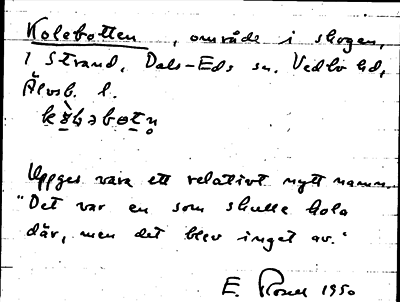 Kolebotten, område i skogen,
i Strand, Dals-Eds sn. Vedbo hd,
Älvsb. l.
Uppges vara ett relativt nytt namn.
"Det var en som skulle kola
där, men det blev inget av."
E. Rosell 1950